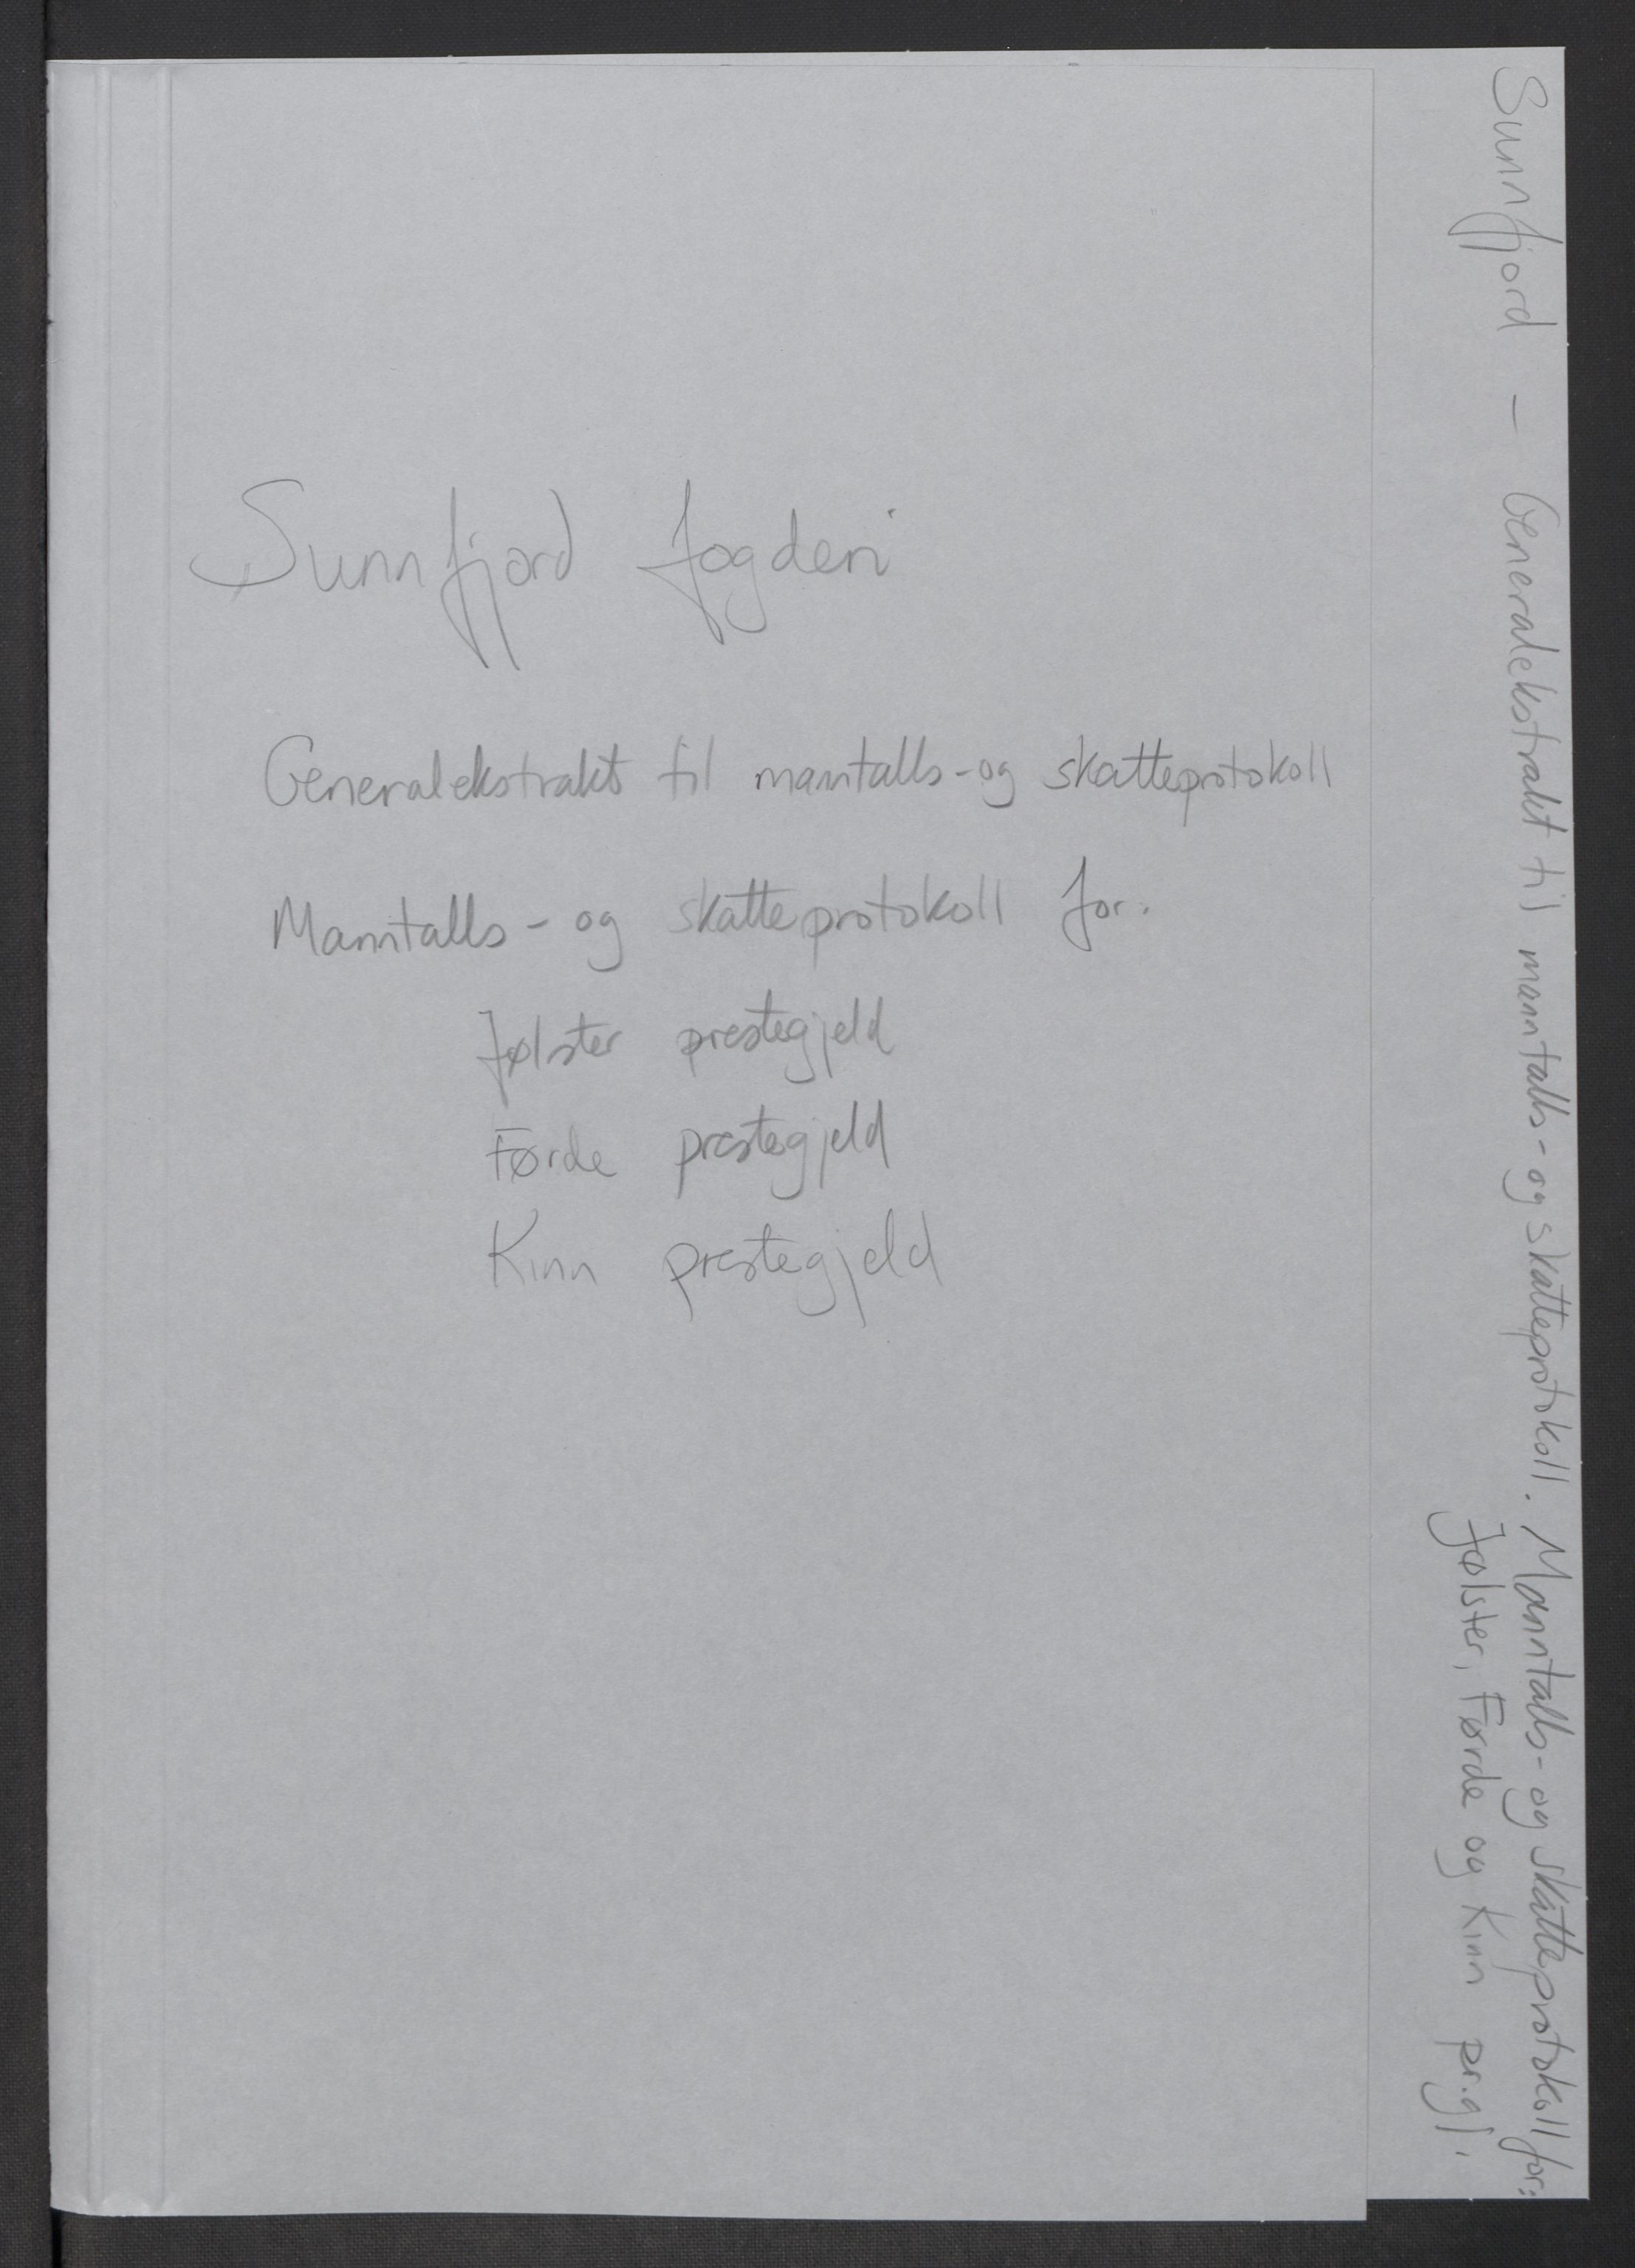 Sunnfjord fogderi
Generalekstrakt til manntalls-og skatteprotokoll
Manntalls- og skatteprotokoll for:
Jølster prestegjeld
Førde prestegjeld
Kinn prestegjeld
Sunnfjord – Generalekstrakt til manntalls- og skatteprotokoll. Manntalls- og skatteprotokoll for:
Jølster, Førde og Kinn pr.gj.